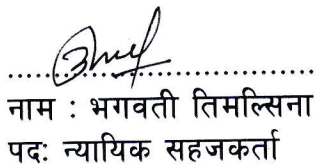 नाम : भगवती तिमल्सिना
पदः न्यायिक सहजकर्ता